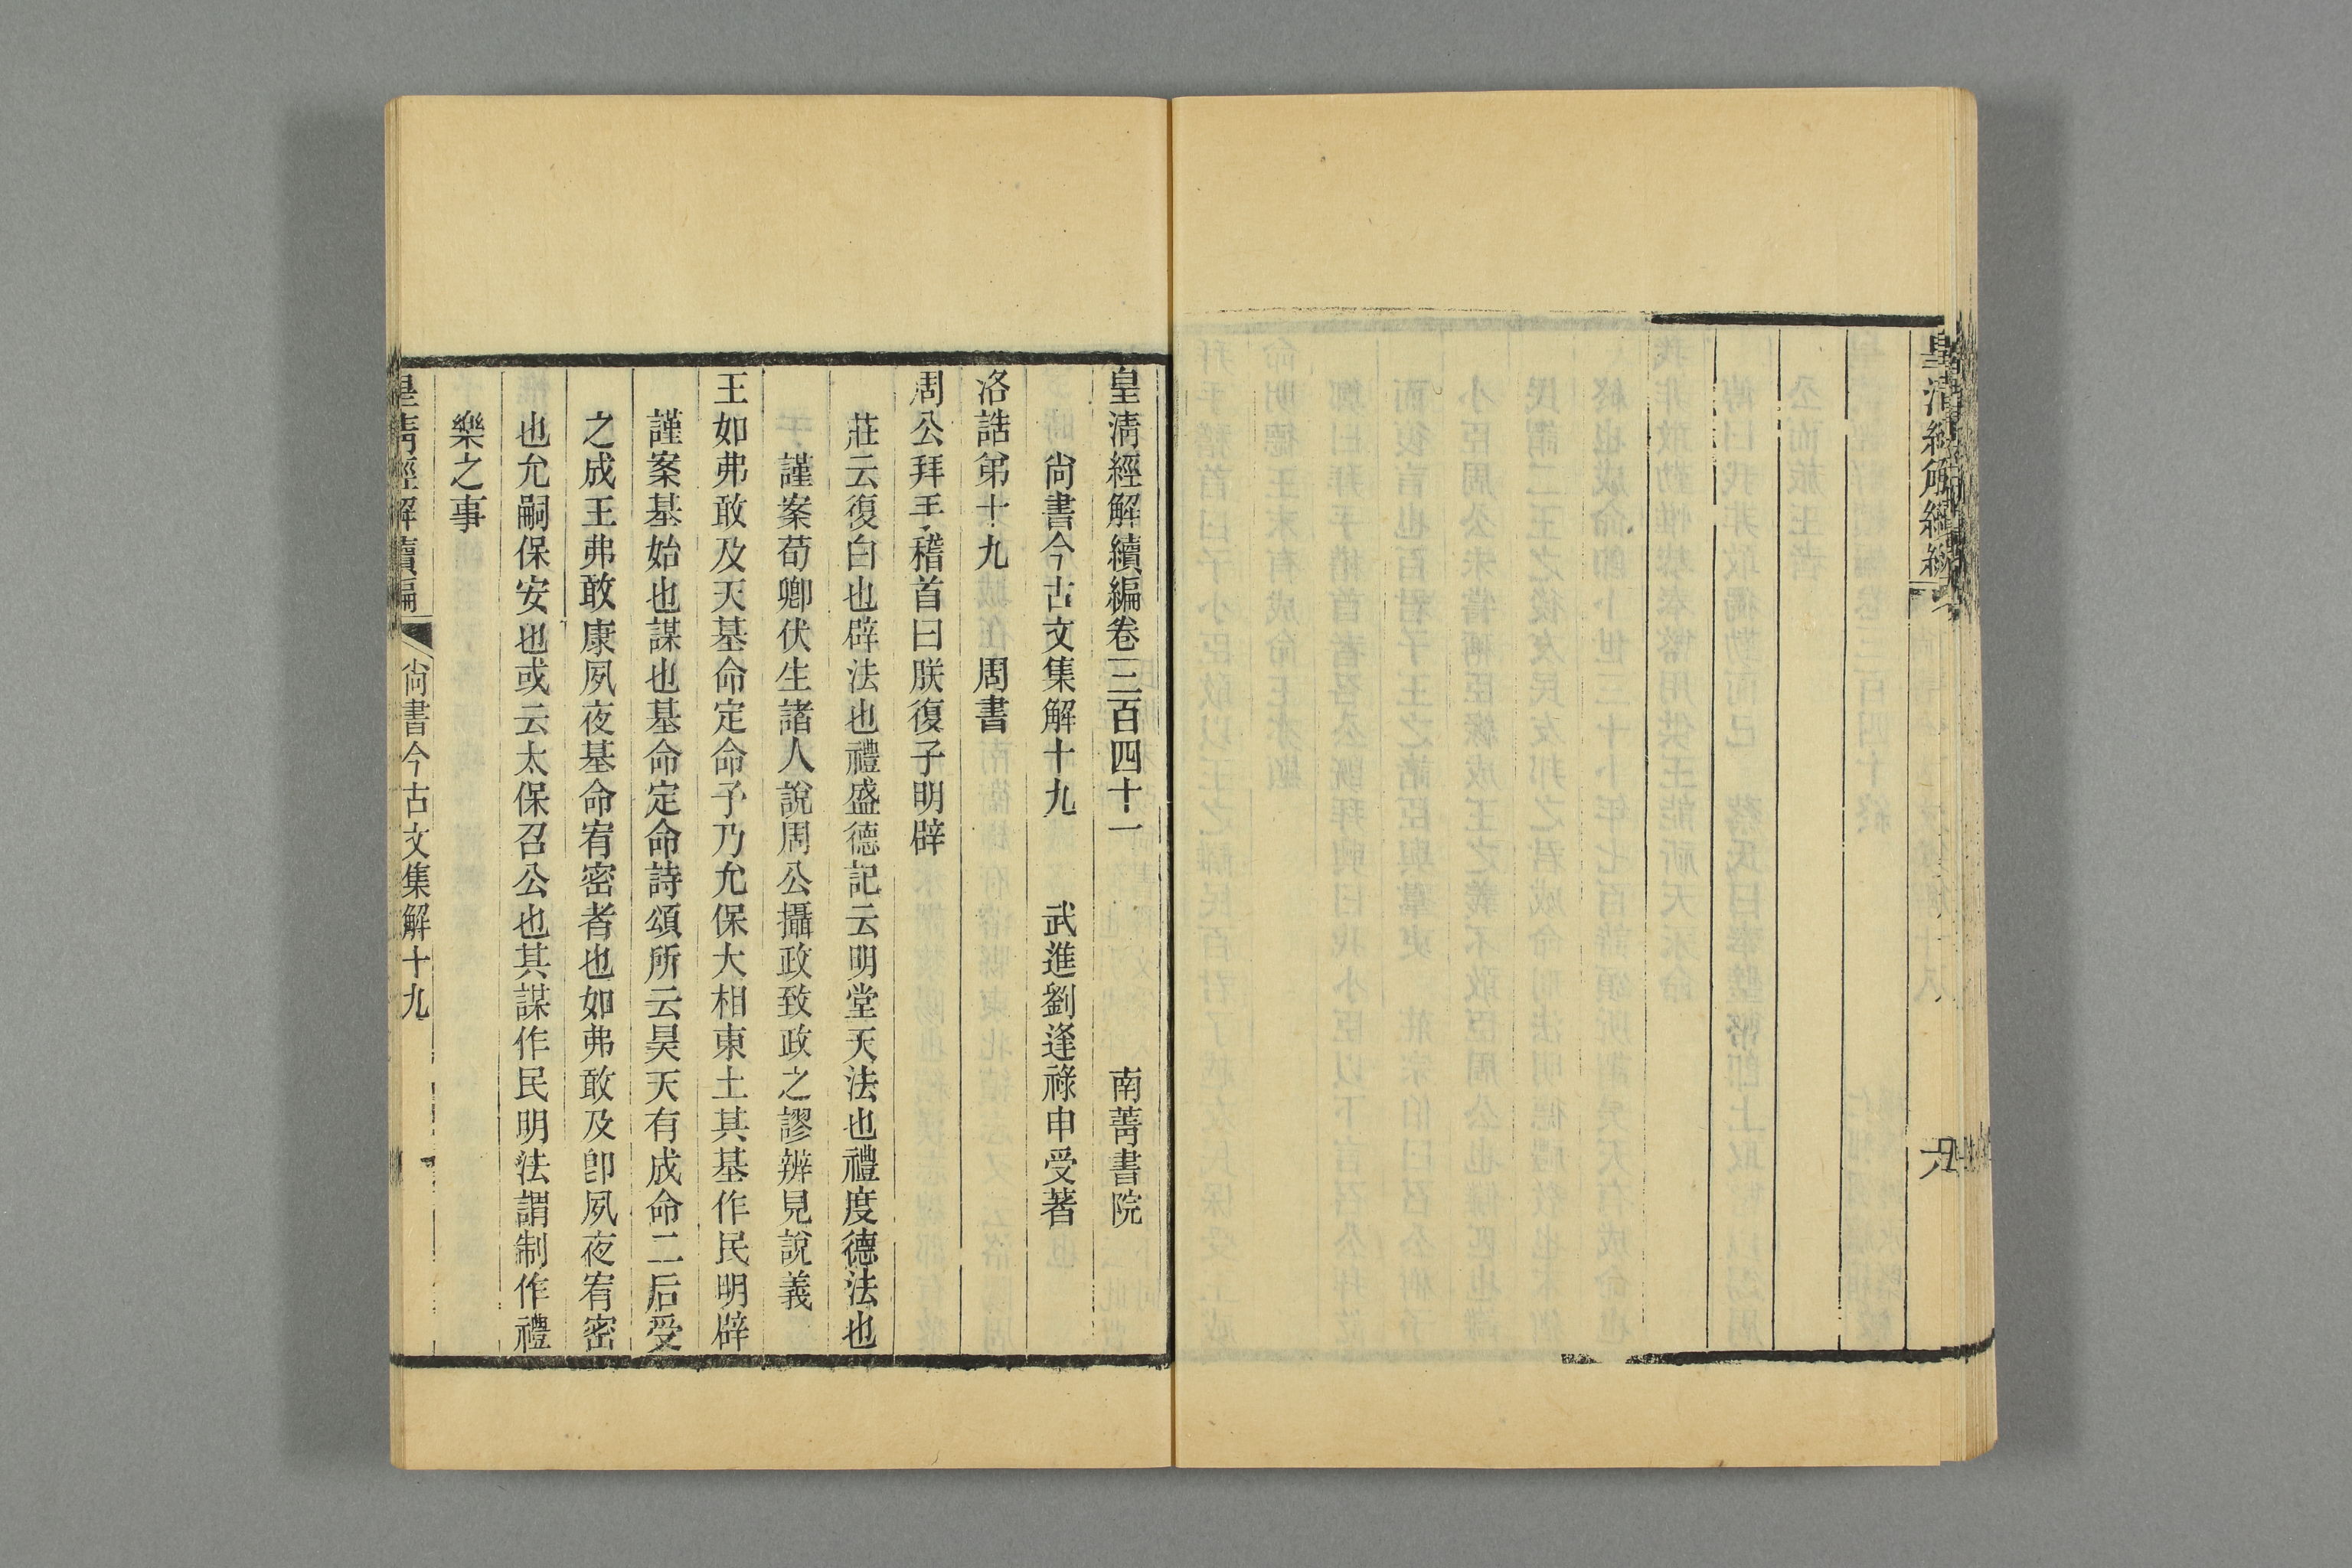 皇清經解續編
皇清經解續編卷三百四十一 南菁書院
尚書今古文集解十九 武進劉逢祿申受著
洛誥弟十九 周書
周公拜手稽首曰朕復子明辟
莊云復白也辟法也禮盛德記云明堂天法也禮度德法也
謹案荀卿伏生諸人說周公攝政致政之謬辨見說義
王如弗敢及天基命定命予乃允保大相東土其基作民明辟
謹案基始也謀也基命定命詩頌所云昊天有成命二后受
之成王弗敢康夙夜基命宥密者也如弗敢及卽夙夜宥密
也允嗣保安也或云太保召公也其謀作民明法謂制作禮
樂之事
皇清經解續編 尚書今古文集解十九